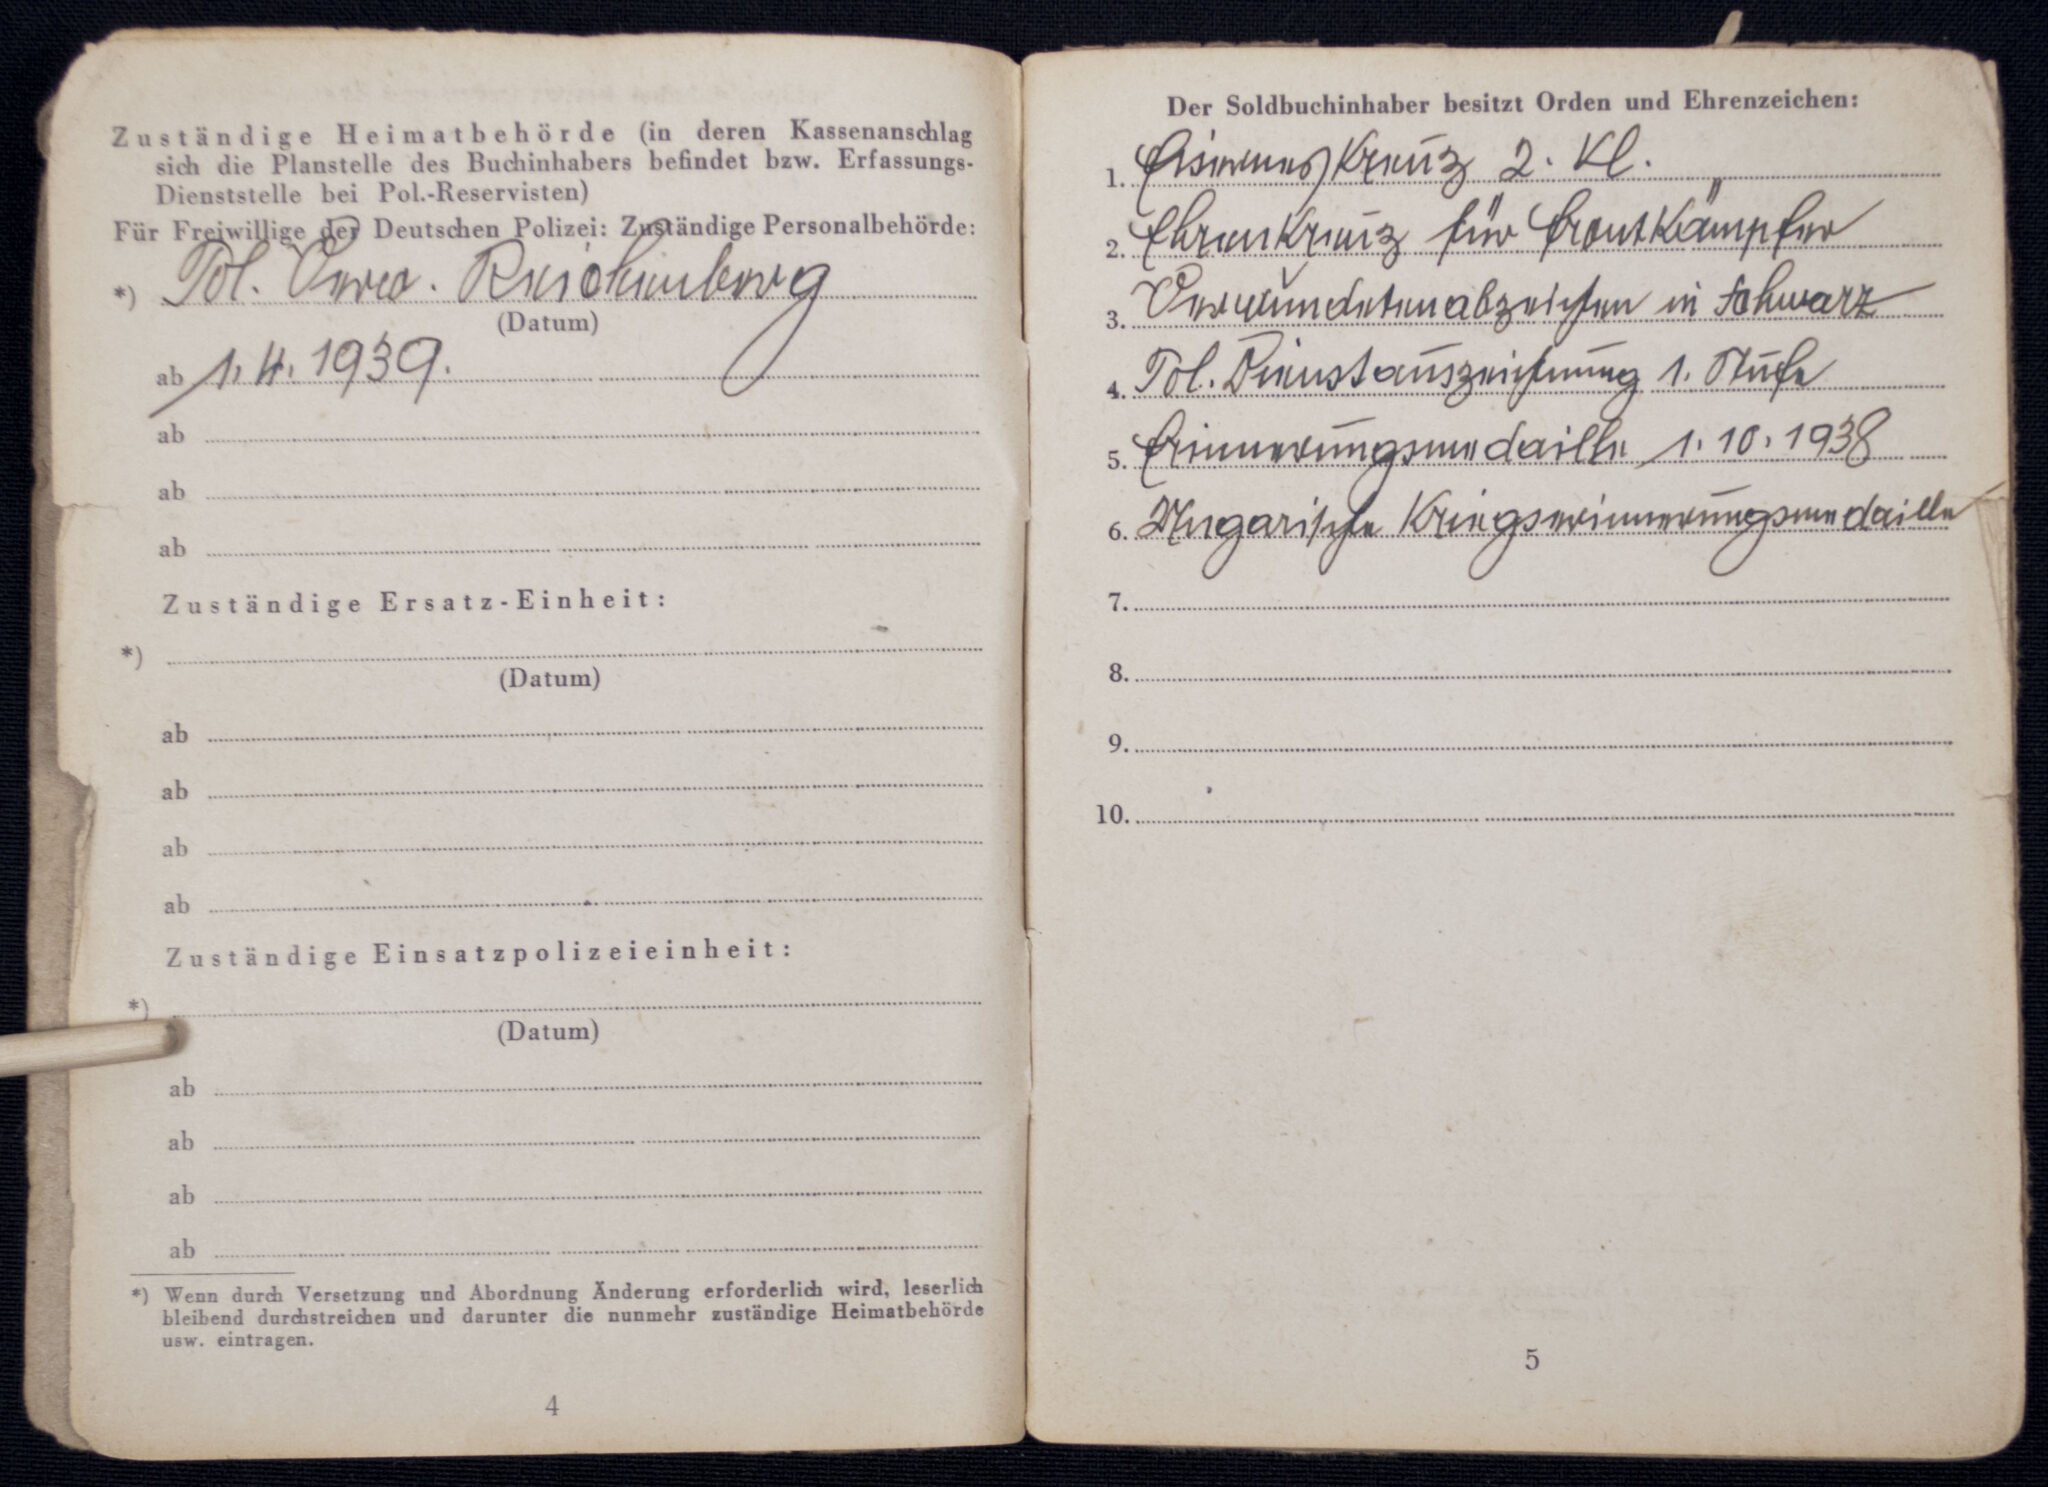 Zuständige Heimatbehörde (in deren Kassenanschlag
sich die Planstelle des Buchinhabers befindet bzw. Erfassungs-
Dienststelle bei Pol.-Reservisten)
Für Freiwillige der Deutschen Polizei: Zuständige Personalbehörde:
*) Pol. Verw. Reichenberg
(Datum)
ab 1.4.1939.
ab
ab
ab
Zuständige Ersatz-Einheit:
*)
(Datum)
ab
ab
ab
ab
Zuständige Einsatzpolizeieinheit:
*)
(Datum)
ab
ab
ab
ab
*) Wenn durch Versetzung und Abordnung Änderung erforderlich wird, leserlich
bleibend durchstreichen und darunter die nunmehr zuständige Heimatbehörde
usw. eintragen.
4
Der Soldbuchinhaber besitzt Orden und Ehrenzeichen:
1. Eisernes Kreuz 2. Kl.
2. Ehrenkreuz für Frontkämpfer
3. Verwundetenabzeichen in schwarz
4. Pol. Dienstauszeichnung 1. Stufe
5. Erinnerungsmedaille 1.10.1938
6. Ungarische Kriegserinnerungsmedaille
7.
8.
9.
10.
5